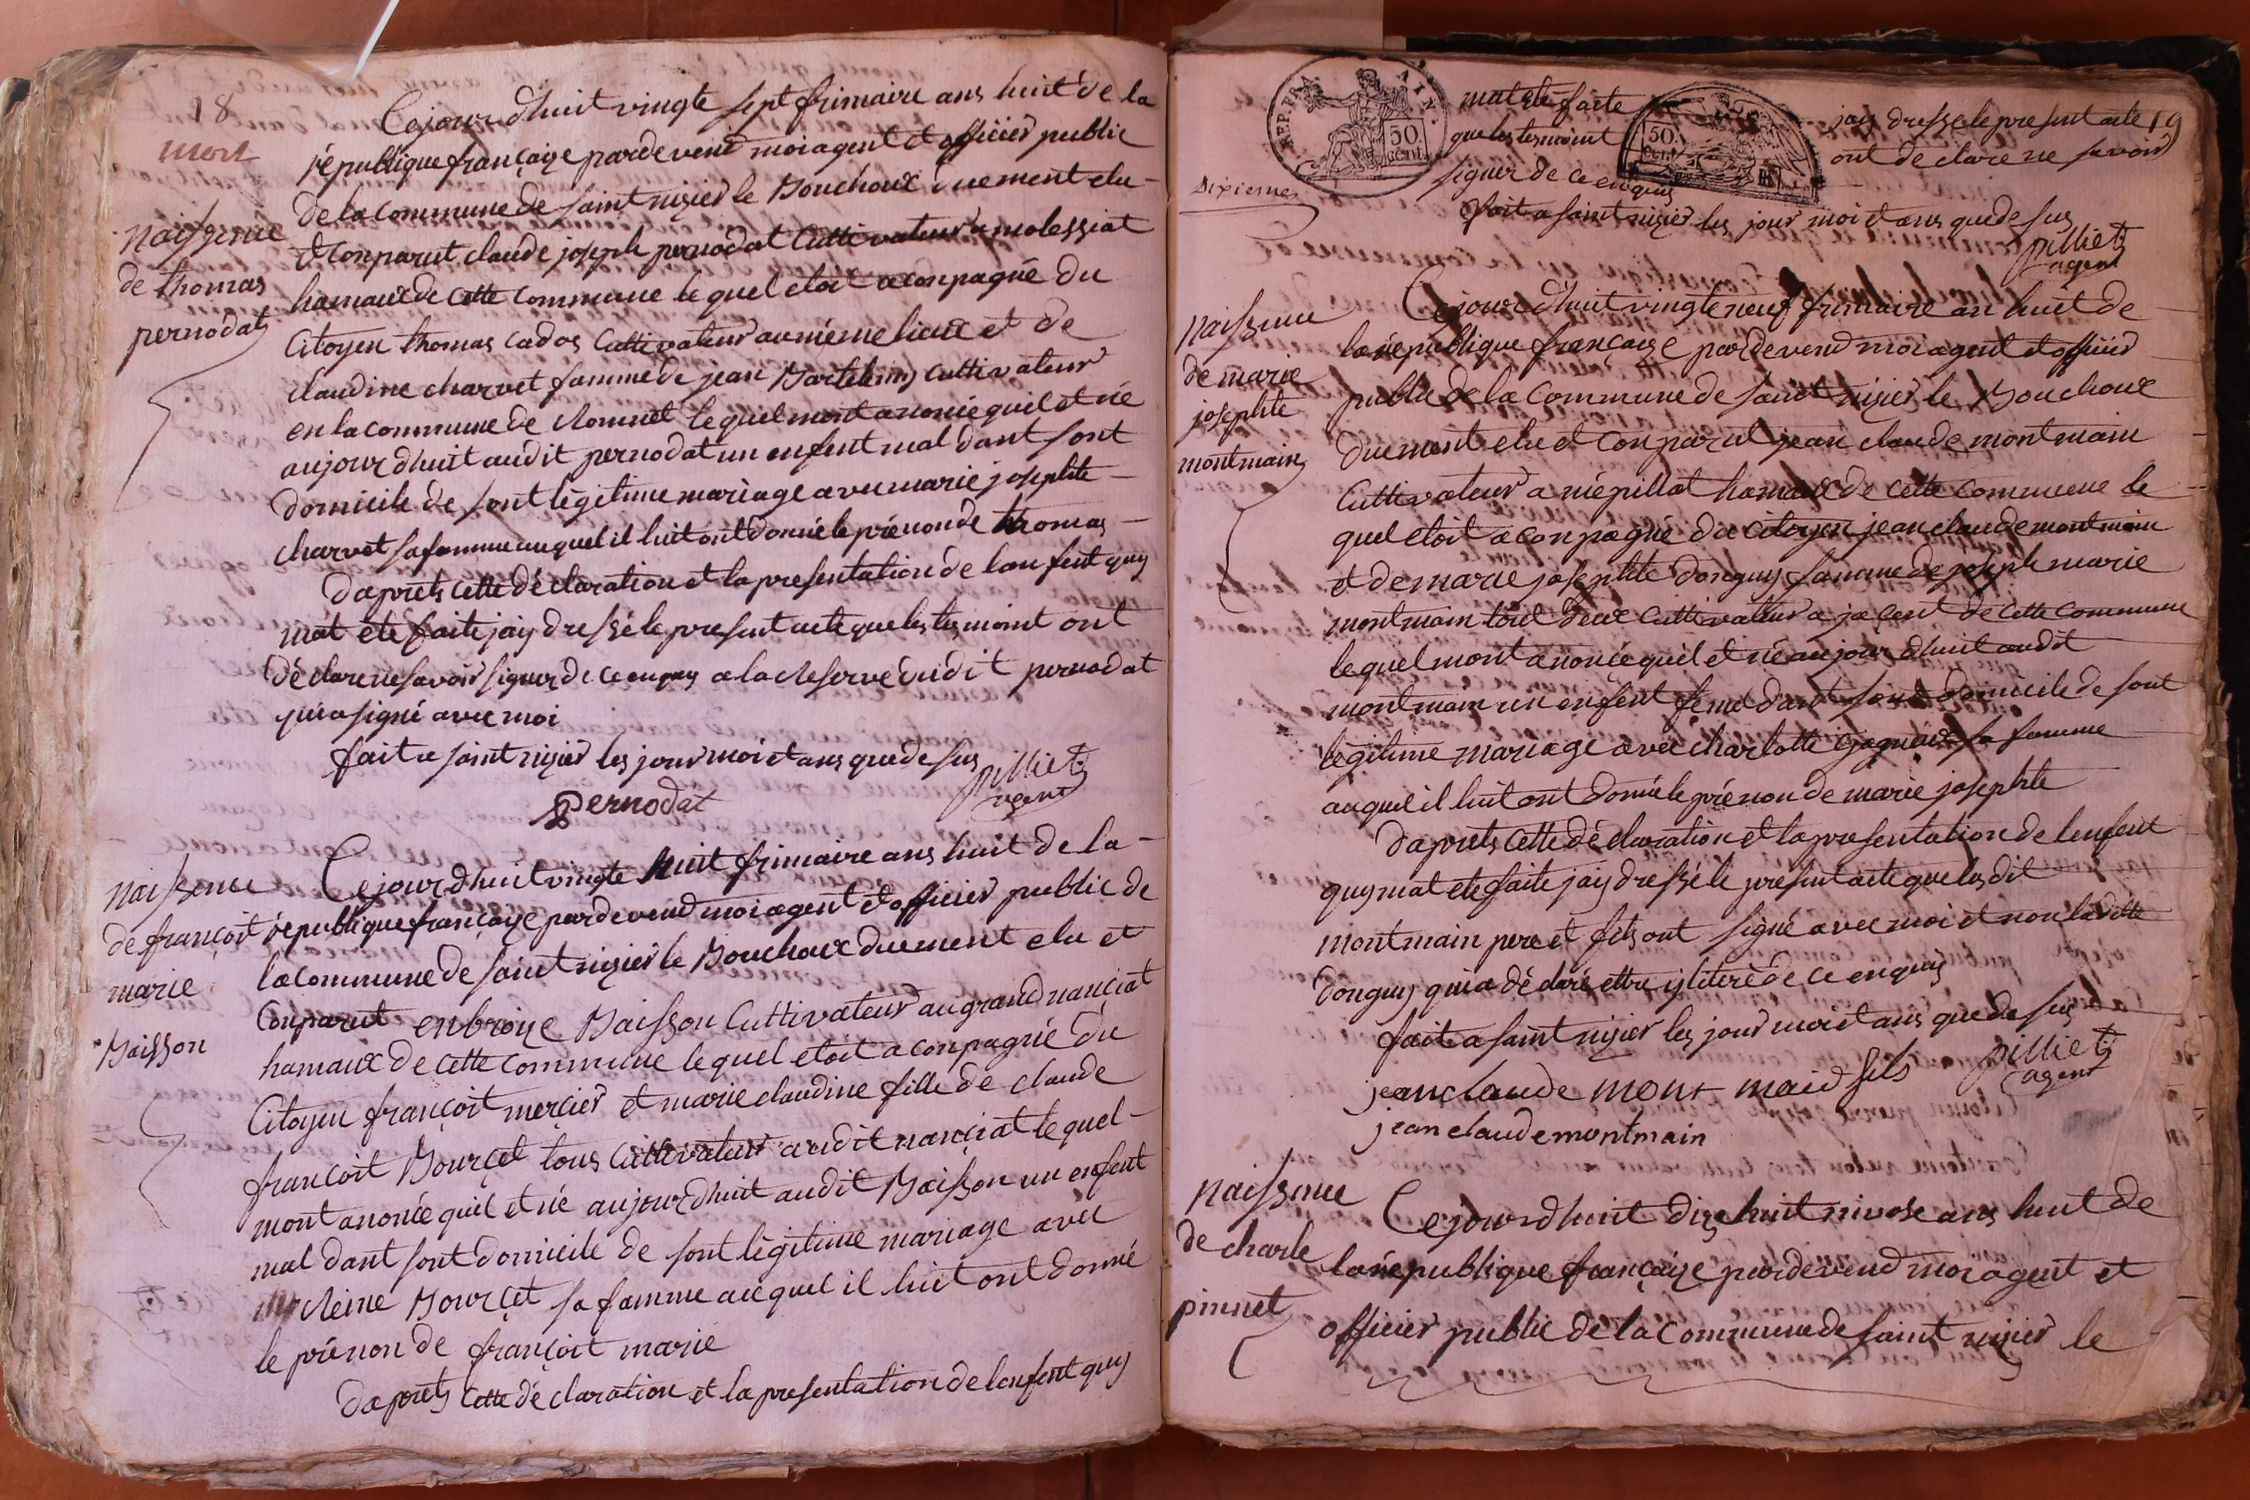 18
mort
Naissence
de thomas
pernodat
Cejourdhuit vingte sept frimaire ans huit de la
république françaize pardevent moi agent et officier public
de la commune de saint nizier le Bouchoux duement elu
et Conparut claude joseph pernodat Cultivateur a molessiat
hamaux de cette commune le quel etoit aconpagné du
Citoyen thomas cados Cultivateur au même lieux et de
claudine charvet famme de jean Bartelemy cultivateur
en la commune de lequel mont anoncé quil et né
aujourdhuit audit pernodat un enfent mal dant sont
domicile de sont legitime mariage avec marie josephte
charvet sa famme auquel il luit ont donné le prénon de thomas
Daprets cette déclaration et la presentation de lenfent quy
mat été faite jay dressé le present acte que les tesmoint ont
déclare ne savoir signer de ce enquis a la Reserve dudit pernodat
qui a signé avec moi
fait a saint nizier les jour moi et ans que de sus
pilliet
agent
pernodat
Naissence
de françoit
marie
Baisson
Cejourdhuit vingte huit frimaire ans huit de la
république françaize pardevend moi agent et officier public de
la commune de saint nizier le Bouchoux duement elu et
Conparut enbroize Baisson Cultivateur au grand nanciat
hamaux de cette commune le quel etoit aconpagné du
Citoyen françoit mercier et marie claudine fille de claude
françoit Bourcet tous Cultivateur audit nanciat le quel
mont anoncé quil et né aujourdhuit audit Baisson un enfent
mal dant sont domicile de sont légitime mariage avec
Reine Bourcet sa famme auquel il luit ont donné
le prénon de françoit marie
Daprets cette déclaration et la presentation de lenfent quy
REP. FRA.
AIN
50
CENT.
50
CENT.
19
Dixieme
mat été faite jay dresse le present acte
que les tesmoint ont de clare ne savoir
signer de ce enquis
fait a saint nizier les jour moi et ans que de sus
pilliet
agent
Naissence
de marie
josephte
montmain
Cejourdhuit vingte neuf frimaire an huit de
la république françaize pardevend moi agent et officier
public de la commune de saint nizier le Bouchoux
duement elu et Conparut jean claude montmain
Cultivateur a népillat hamaux de cette commune le
quel etoit aconpagné du citoyen jean claude montmain
et de marie josephte donguy famme de joseph marie
montmain tout deux cultivateur a de cette commune
le quel mont anoncé quil et né aujourdhuit audit
montmain un enfent femel dant sont domicile de sont
legitime mariage avec charlotte gagneux sa famme
auquel il luit ont donné le prénon de marie josephte
Daprets cette déclaration et la presentation de lenfent
quy mat ete faite jay dressé le present acte que les dit
montmain pere et fils ont signé avec moi et non ladite
donguy qui a déclaré ettre yliteré de ce enquis
fait a saint nizier les jour moi et ans que de sus
pilliet
agent
jean claude mont maid fils
jean claude montmain
Naissence
de charle
pinnet
Cejourdhuit dize huit nivose ans huit de
la république françaize pardevend moi agent et
officier public de la commune de saint nizier le